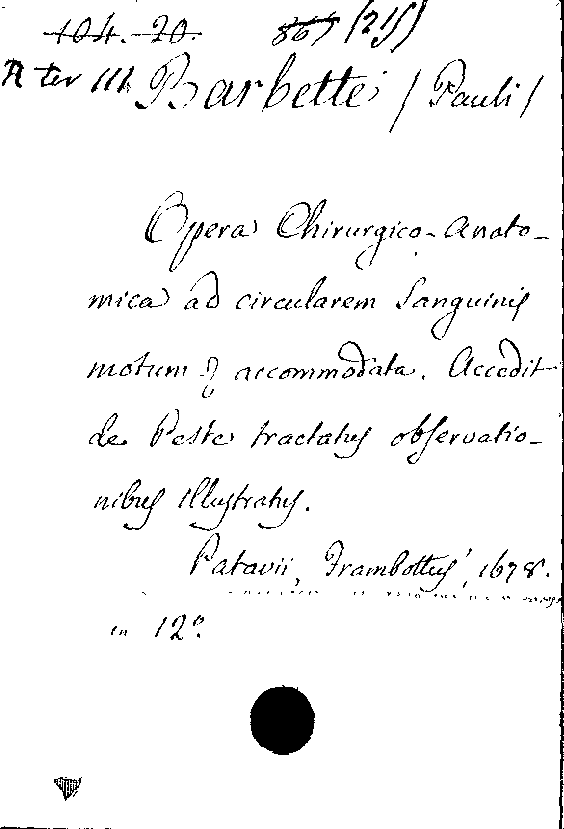 104.-20. 867 (215)
A ter III Barbette / Pauli /
Opera Chirurgico-Anato-
mica ad circularem Sanguinis
motum & accommodata. Accedit
de Peste tractatus observatio-
nibus illustratus.
Patavii, Frambottus, 1678.
in 12º.